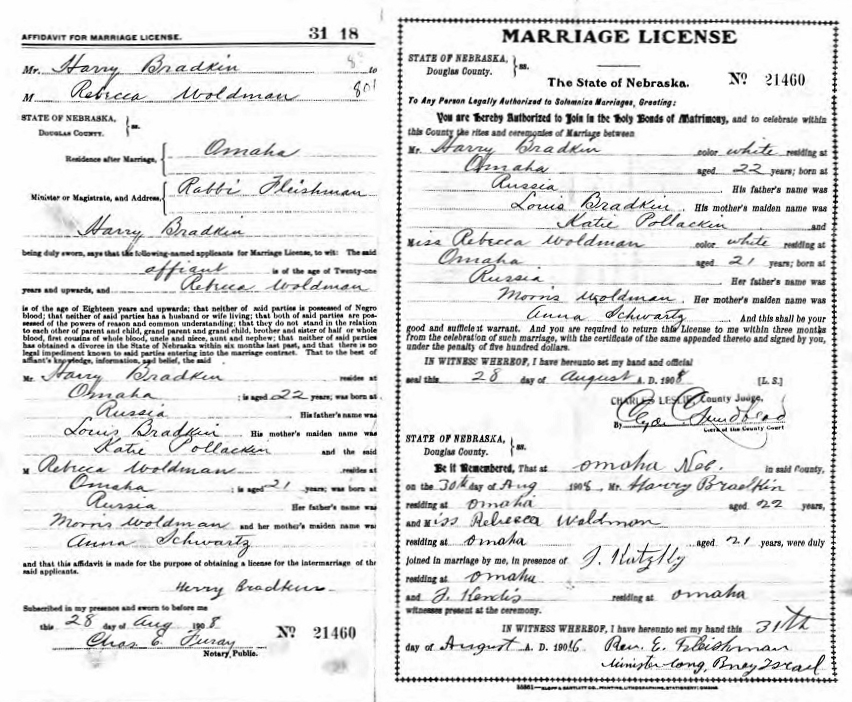 AFFIDAVIT FOR MARRIAGE LICENSE. 31 18
Mr. Harry Bradkin to
M Rebecca Woldman 801
STATE OF NEBRASKA, } ss.
Douglas County.
Residence after Marriage, { Omaha
Minister or Magistrate, and Address, { Rabbi Fleishman
Harry Bradkin
being duly sworn, says that the following-named applicants for Marriage License, to wit: The said
affiant is of the age of Twenty-one
years and upwards, and Rebecca Woldman
is of the age of Eighteen years and upwards; that neither of said parties is possessed of Negro
blood; that neither of said parties has a husband or wife living; that both of said parties are pos-
sessed of the powers of reason and common understanding; that they do not stand in the relation
to each other of parent and child, grand parent and grand child, brother and sister of half or whole
blood, first cousins of whole blood, uncle and niece, aunt and nephew; that neither of said parties
has obtained a divorce in the State of Nebraska within six months last past, and that there is no
legal impediment known to said parties entering into the marriage contract. That to the best of
affiant's knowledge, information, and belief, the said
Mr. Harry Bradkin resides at
Omaha ; is aged 22 years; was born at
Russia His father's name was
Louis Bradkin His mother's maiden name was
Katie Pollackin and the said
M Rebecca Woldman resides at
Omaha ; is aged 21 years; was born at
Russia Her father's name was
Morris Woldman and her mother's maiden name was
Anna Schwartz
and that this affidavit is made for the purpose of obtaining a license for the intermarriage of the
said applicants.
Herry Bradkin
Subscribed in my presence and sworn to before me
this 28 day of Aug 1908
Chas E. Furay No 21460
Notary Public.
MARRIAGE LICENSE
STATE OF NEBRASKA, } ss.
Douglas County.
The State of Nebraska. No 21460
To Any Person Legally Authorized to Solemnize Marriages, Greeting:
You are Hereby Authorized to Join in the Holy Bonds of Matrimony, and to celebrate within
this County the rites and ceremonies of Marriage between
Mr. Harry Bradkin color white residing at
Omaha aged 22 years; born at
Russia His father's name was
Louis Bradkin His mother's maiden name was
Katie Pollackin and
Miss Rebecca Woldman color white residing at
Omaha aged 21 years; born at
Russia Her father's name was
Morris Woldman. Her mother's maiden name was
Anna Schwartz And this shall be your
good and sufficient warrant. And you are required to return this License to me within three months
from the celebration of such marriage, with the certificate of the same appended thereto and signed by you,
under the penalty of five hundred dollars.
IN WITNESS WHEREOF, I have hereunto set my hand and official
seal this 28 day of August A. D. 1908 [L. S.]
CHARLES LESLIE, County Judge,
By
Clerk of the County Court
STATE OF NEBRASKA, } ss.
Douglas County.
Be it Remembered, That at Omaha Neb. in said County,
on the 30th day of Aug 1908 Mr. Harry Braelkin
residing at Omaha aged 22 years,
and Miss Rebecca Woldman
residing at Omaha aged 21 years, were duly
joined in marriage by me, in presence of
residing at Omaha
and residing at Omaha
witnesses present at the ceremony.
IN WITNESS WHEREOF, I have hereunto set my hand this 31th
day of August A. D. 1906 Rev. E. Fleishman
Minister Cong. Bney Israel